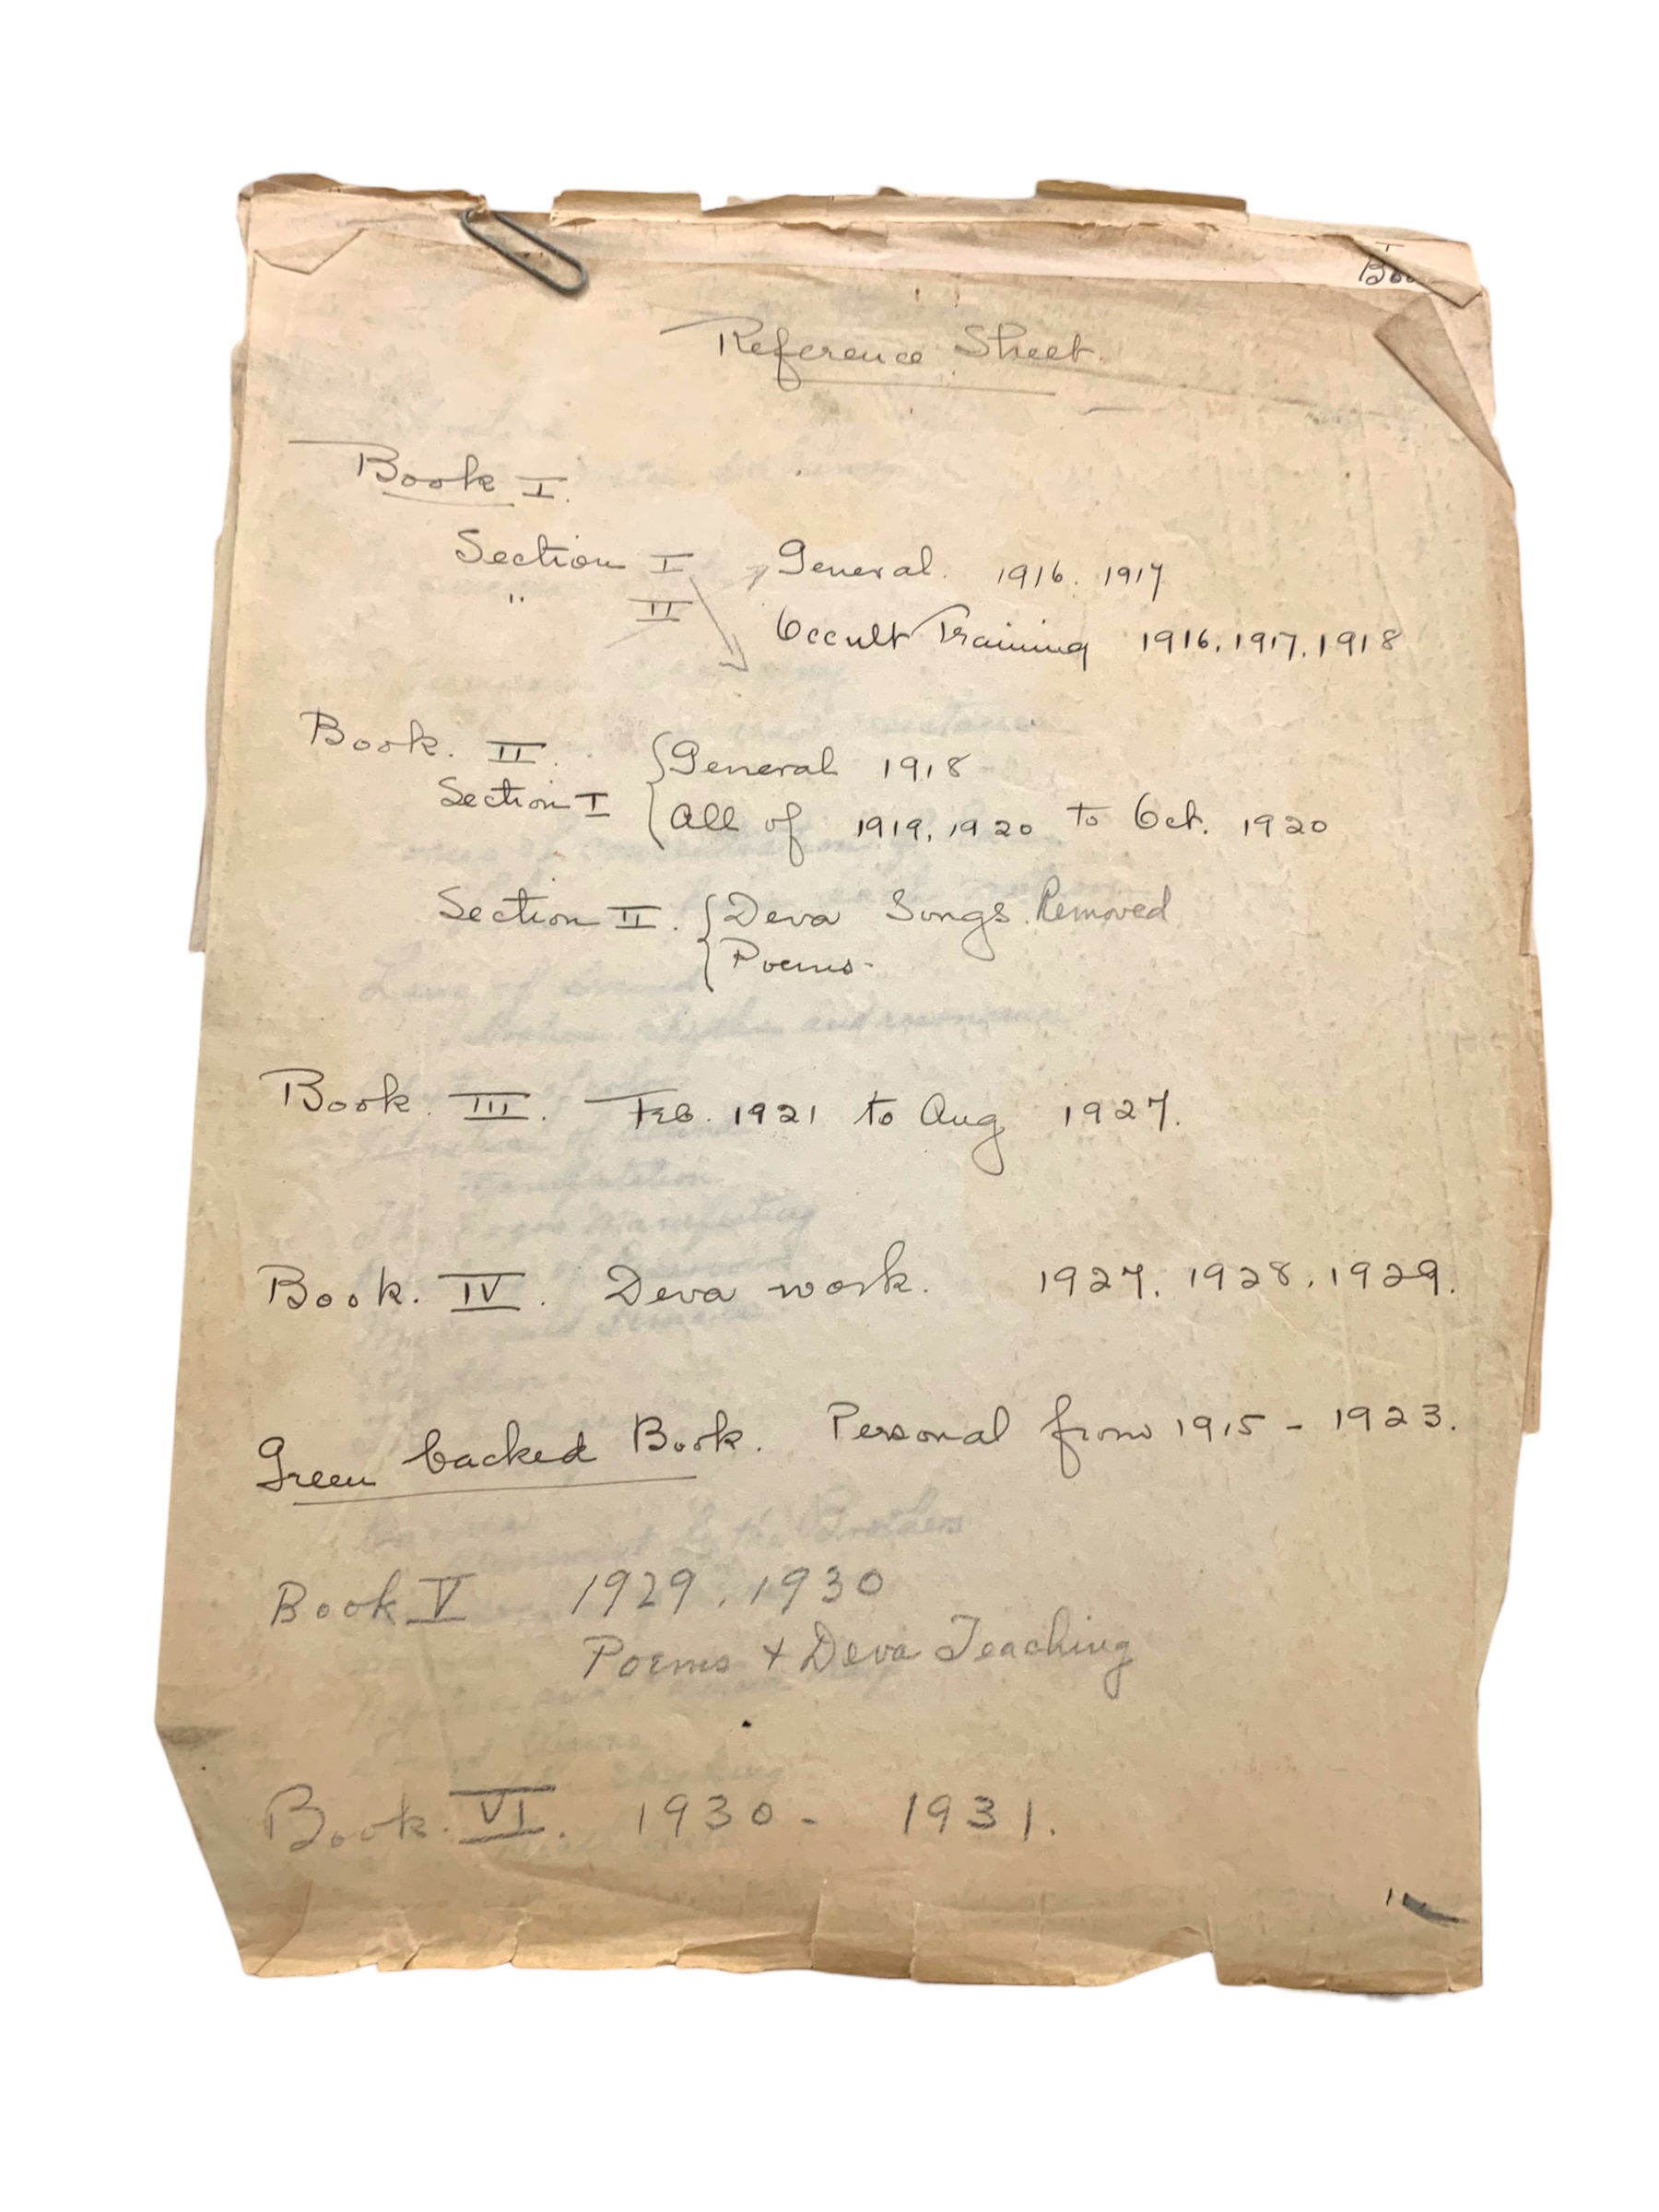 Reference Sheet.
Book I.
Section I General. 1916. 1917
" II Occult Training 1916. 1917. 1918
Book. II.
{General 1918
Section I
{All of 1919, 1920 to Oct. 1920
Section II. {Deva Songs. Removed
{Poems-
Book. III. Feb. 1921 to Aug 1927.
Book. IV. Deva work. 1927. 1928. 1929.
Green backed Book. Personal from 1915 - 1923.
Book V 1929. 1930
Poems + Deva Teaching
Book. VI. 1930 - 1931.